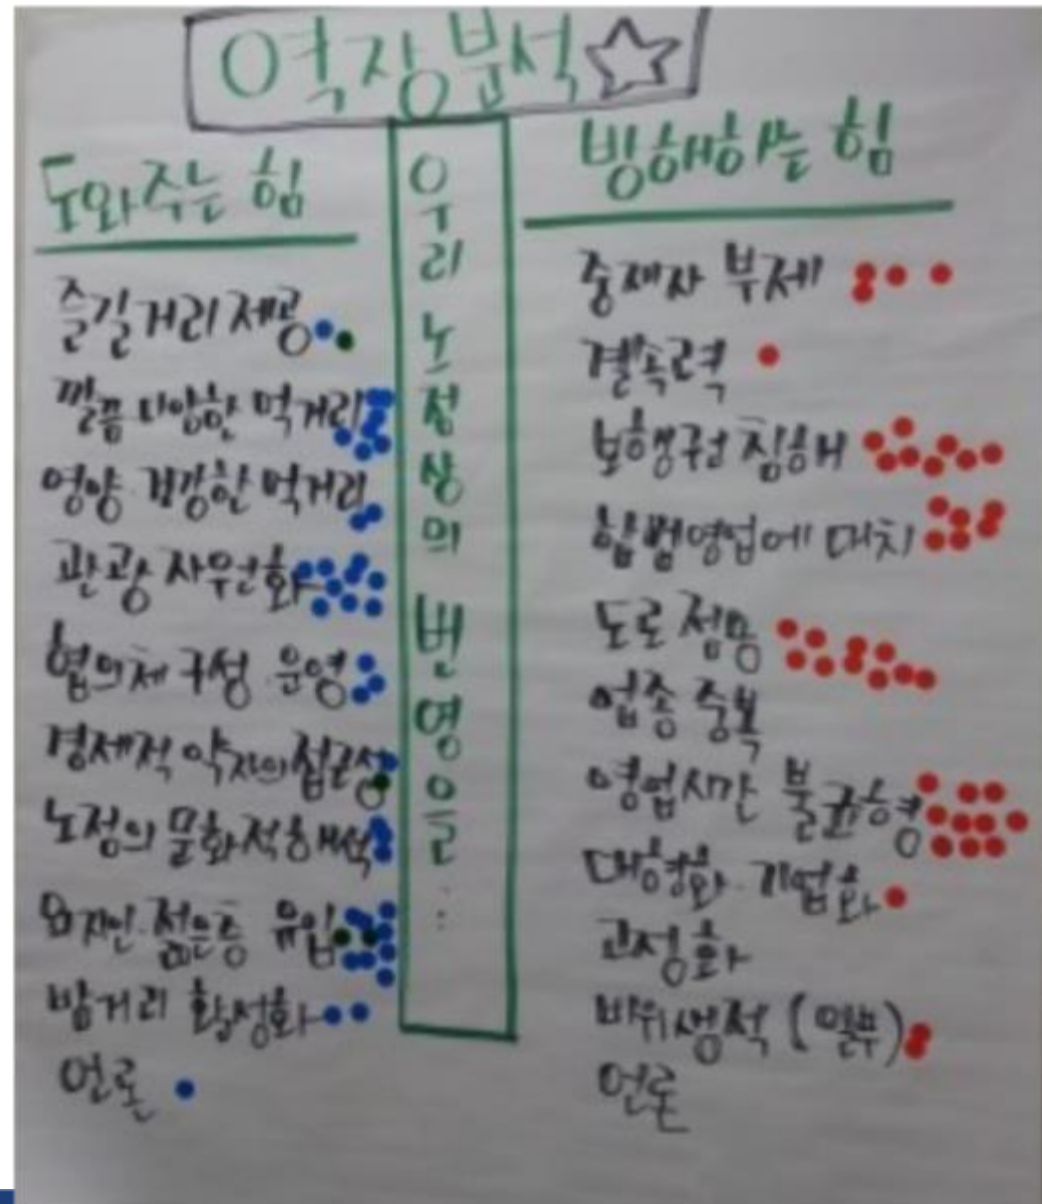 역장분석
도와주는 힘
즐길거리 제공
깔끔 다양한 먹거리
영양 건강한 먹거리
관광 자원화
협의체 구성 운영
경제적 약자의 접근성
노점의 문화적 해석
외지인·젊은층 유입
밤거리 활성화
언론
우리 노점상의 번영을...
방해하는 힘
중재자 부제
결속력
보행권 침해
합법영업에 대치
도로 점용
업종 중복
영업시간 불균형
대형화·기업화
고정화
비위생적 (일부)
언론